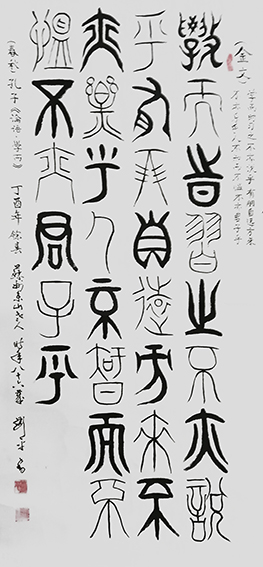 （金文）
学而时习之不亦说乎 有朋自远方来
不亦乐乎人不知而不愠不亦君子乎
斆而時習之不亦說
乎有朋自遠方來不
亦樂乎人不知而不
慍不亦君子乎
孔子《論語·學而》
丁酉年 東山老人 時年八十八歲